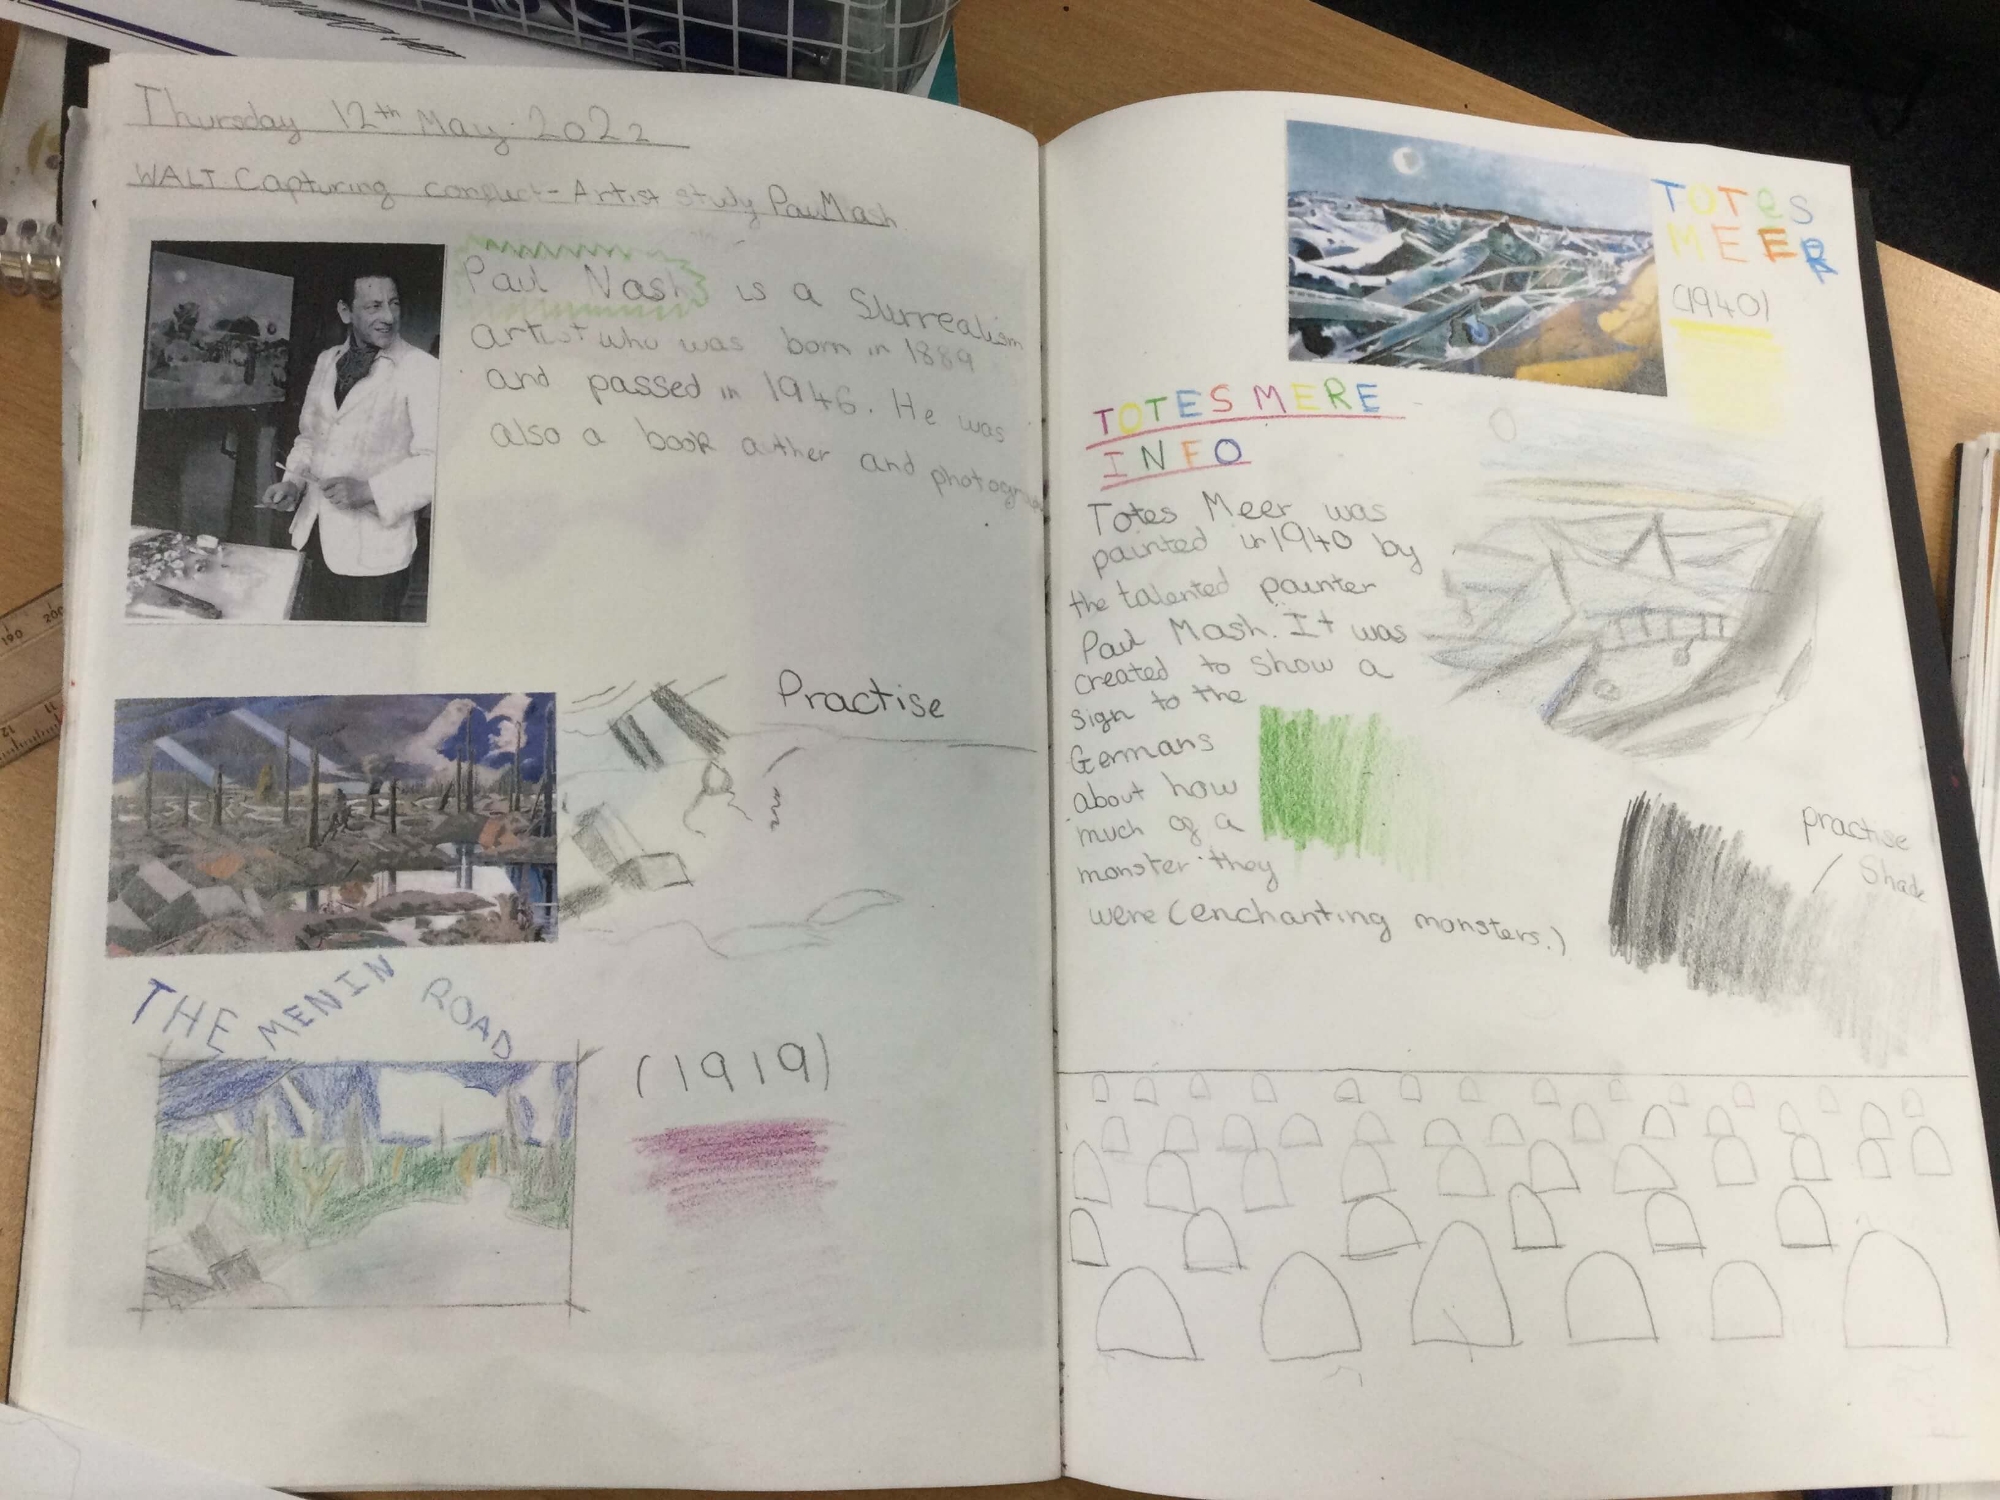 Thursday 12th May 2022
WALT Capturing conflict - Artist study Paul Nash
Paul Nash is a Slurrealism
artist who was born in 1889
and passed in 1946. He was
also a book auther and
Practise
THE MENIN ROAD
(1919)
TOTES
MEER
(1940)
TOTES MERE
INFO
Totes Meer was
painted in 1940 by
the talented painter
Paul Mash. It was
created to show a
sign to the
Germans
about how
much of a
monster they
were (enchanting monsters.)
practise
Shade
190 200
12 11